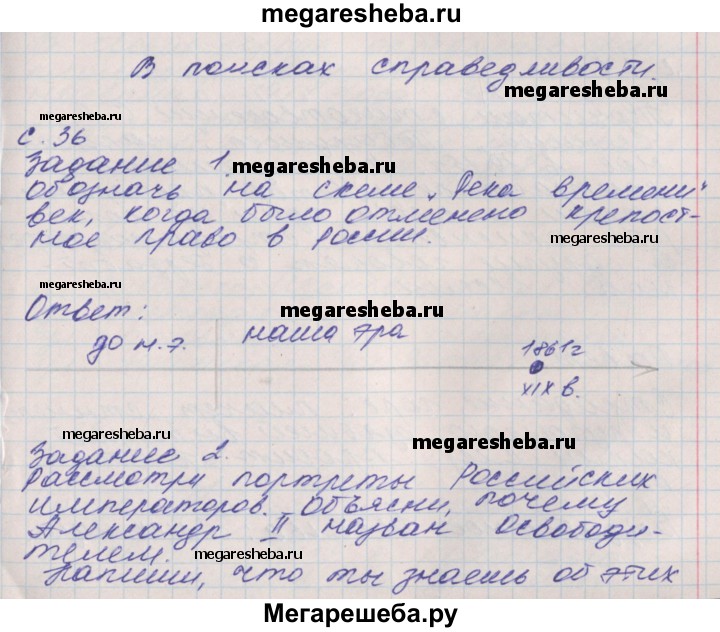 megaresheba.ru
В поисках справедливости.
megaresheba.ru
megaresheba.ru
с. 36
Задание 1.
megaresheba.ru
Обозначь на схеме „Река времени"
век, когда было отменено крепост-
ное право в России.
megaresheba.ru
megaresheba.ru
Ответ:
megaresheba.ru
до н.э. наша эра
1861г
XIX в.
megaresheba.ru
megaresheba.ru
Задание 2.
Рассмотри портреты Российских
императоров. Объясни, почему
Александр II назван Освободи-
телем.
megaresheba.ru
Напиши, что ты знаешь об этих
Мегарешеба.ру